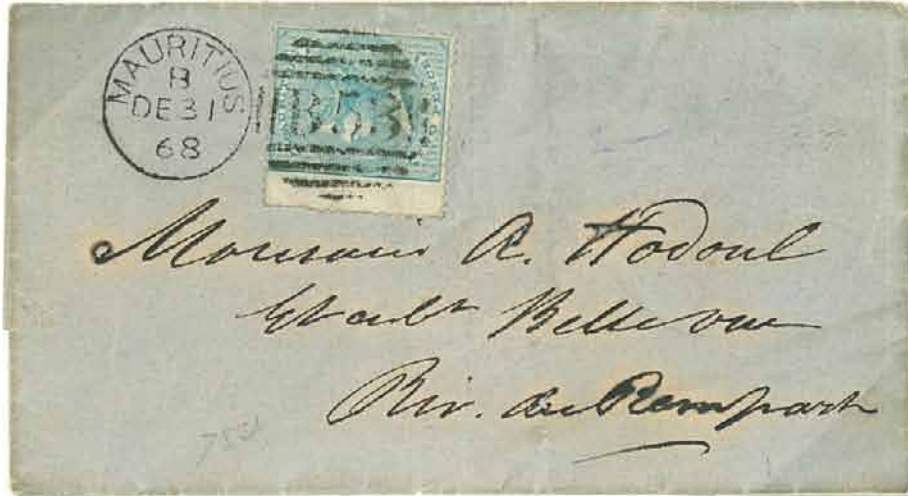 MAURITIUS
B
DE 31
68
B53
Monsieur A. Hodoul
Etabt Belle vue
Riv. du Rempart